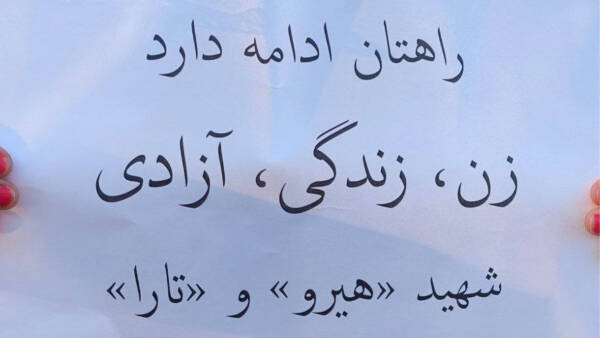 راهتان ادامه دارد
زن، زندگی، آزادی
شهید «هیرو» و «تارا»